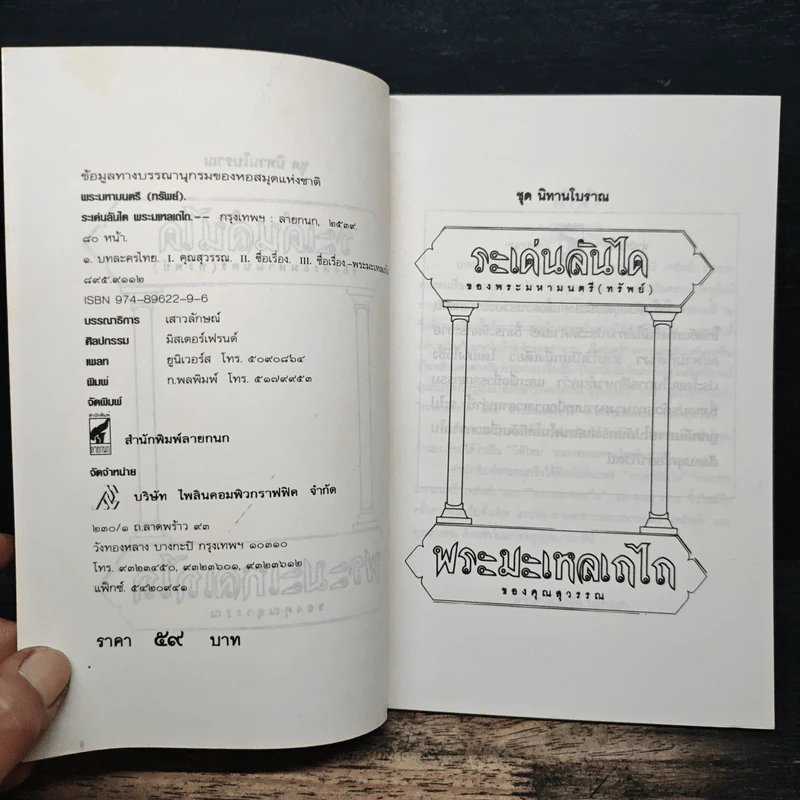 ข้อมูลทางบรรณานุกรมของหอสมุดแห่งชาติ
พระมหามนตรี (ทรัพย์).
ระเด่นลันได พระมเหลเถไถ.-- กรุงเทพฯ : ลายกนก, ๒๕๓๙.
๘๐ หน้า.
๑. บทละครไทย. I. คุณสุวรรณ. II. ชื่อเรื่อง. III. ชื่อเรื่อง.-พระมะเหลเถไถ
๘๙๕.๙๑๑๒
ISBN 974-89622-9-6
บรรณาธิการ เสาวลักษณ์
ศิลปกรรม มิสเตอร์เฟรนด์
เพลท ยูนิเวอร์ส โทร. ๕๐๙๐๘๖๔
พิมพ์ ก.พลพิมพ์ โทร. ๕๑๗๙๙๕๓
จัดพิมพ์
สำนักพิมพ์
ลายกนก
สำนักพิมพ์ลายกนก
จัดจำหน่าย
บริษัท ไพลินคอมพิวกราฟฟิค จำกัด
๒๓๐/๑ ถ.ลาดพร้าว ๙๓
วังทองหลาง บางกะปิ กรุงเทพฯ ๑๐๓๑๐
โทร. ๙๓๒๓๔๕๐, ๙๓๒๓๖๐๑, ๙๓๒๓๖๑๒
แฟ็กซ์. ๕๔๒๐๙๔๑
ราคา ๕๙ บาท
ชุด นิทานโบราณ
ระเด่นลันได
ของพระมหามนตรี(ทรัพย์)
พระมะเหลเถไถ
ของคุณสุวรรณ